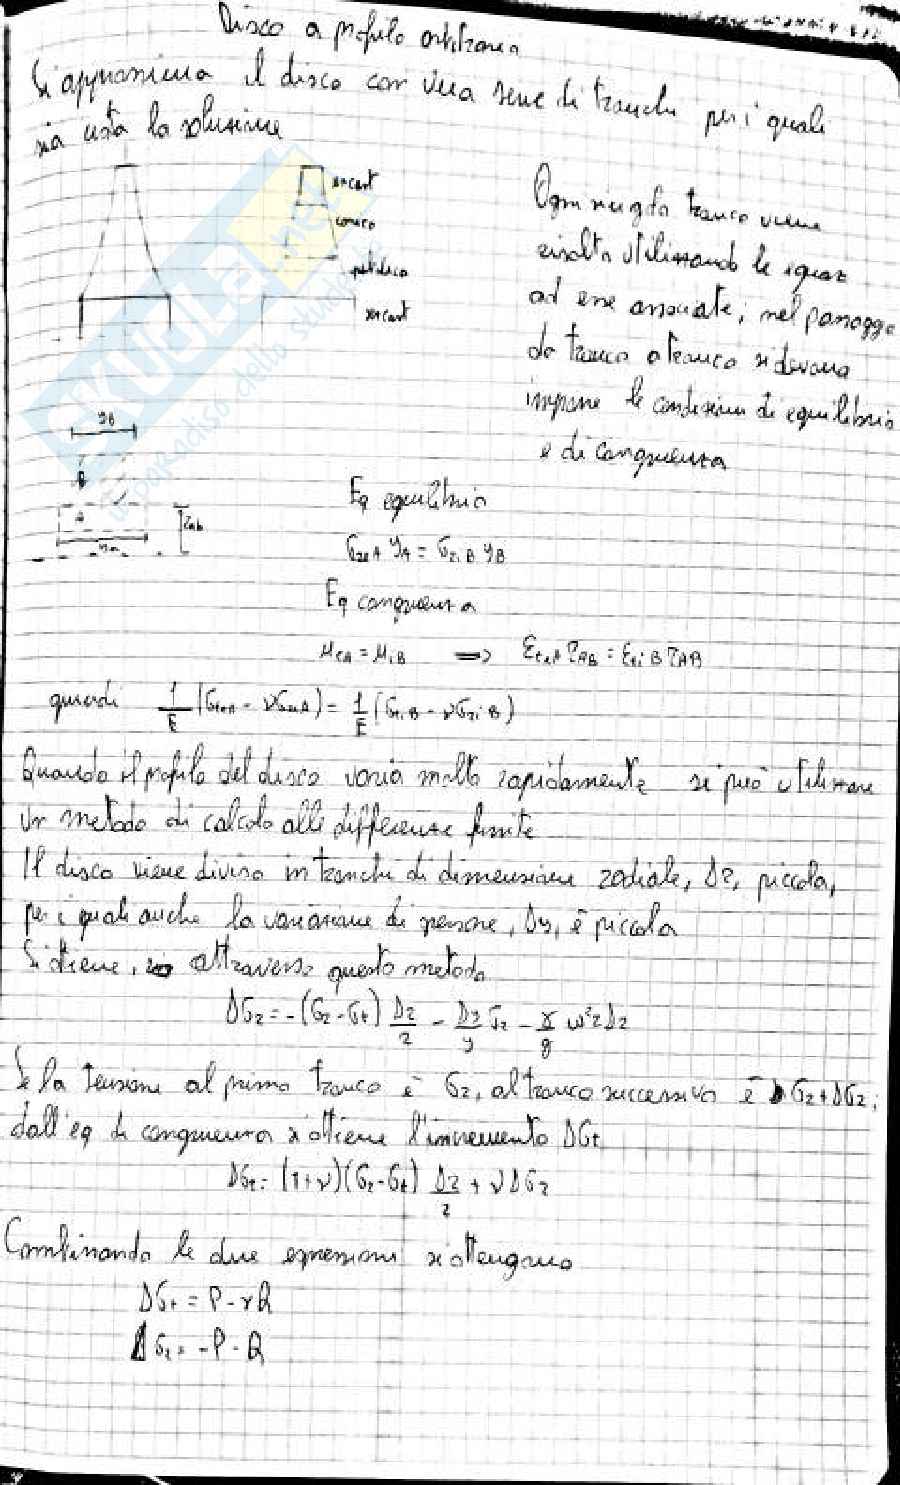 Disco a profilo arbitrario
Si approssima il disco con una serie di tronchi per i quali
sia nota la soluzione
sp cost
conico
iperbolico
sp cost
Ogni singolo tronco viene
risolto utilizzando le equaz
ad esse associate; nel passaggio
da tronco a tronco si devono
imporre le condizioni di equilibrio
e di congruenza
SKUOLA.net
il paradiso dello studente
yB
B
A
yA
rAB
Eq equilibrio
σreA yA = σriB yB
Eq congruenza
ueA = uiB ⟹ εteA rAB = εtiB rAB
quindi 1/E (σteA - νσreA) = 1/E (σtiB - νσriB)
Quando il profilo del disco varia molto rapidamente si può utilizzare
un metodo di calcolo alle differenze finite
Il disco viene diviso in tronchi di dimensione radiale, Δr, piccola,
per i quali anche la variazione di spessore, Δy, è piccola
Si ottiene, attraverso questo metodo
Δσr = -(σr - σt) Δr/r - Δy/y σr - γ/g ω²rΔr
Se la tensione al primo tronco è σr, al tronco successivo è σr + Δσr;
dall'eq di congruenza si ottiene l'incremento Δσt
Δσt = (1+ν)(σr - σt) Δr/r + νΔσr
Combinando le due espressioni si ottengono
Δσt = P - νQ
Δσr = -P - Q